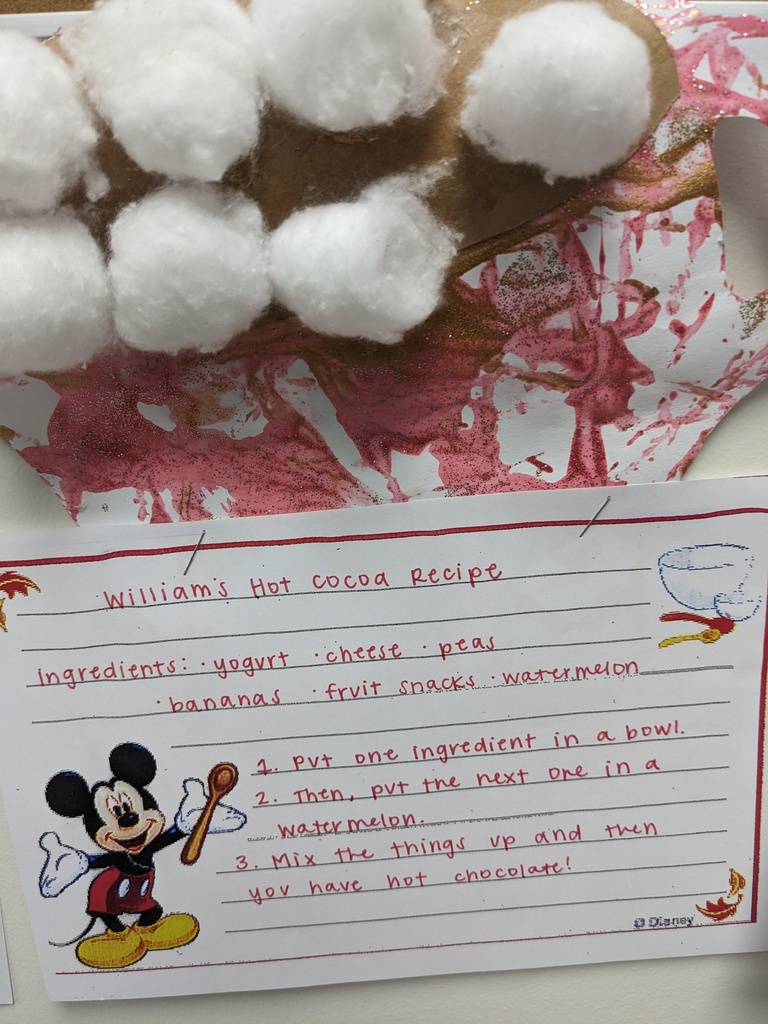 William's Hot Cocoa Recipe
ingredients: · yogurt · cheese · peas
· bananas · fruit snacks · watermelon
1. Put one ingredient in a bowl.
2. Then, put the next one in a
watermelon.
3. Mix the things up and then
you have hot chocolate!
© Disney